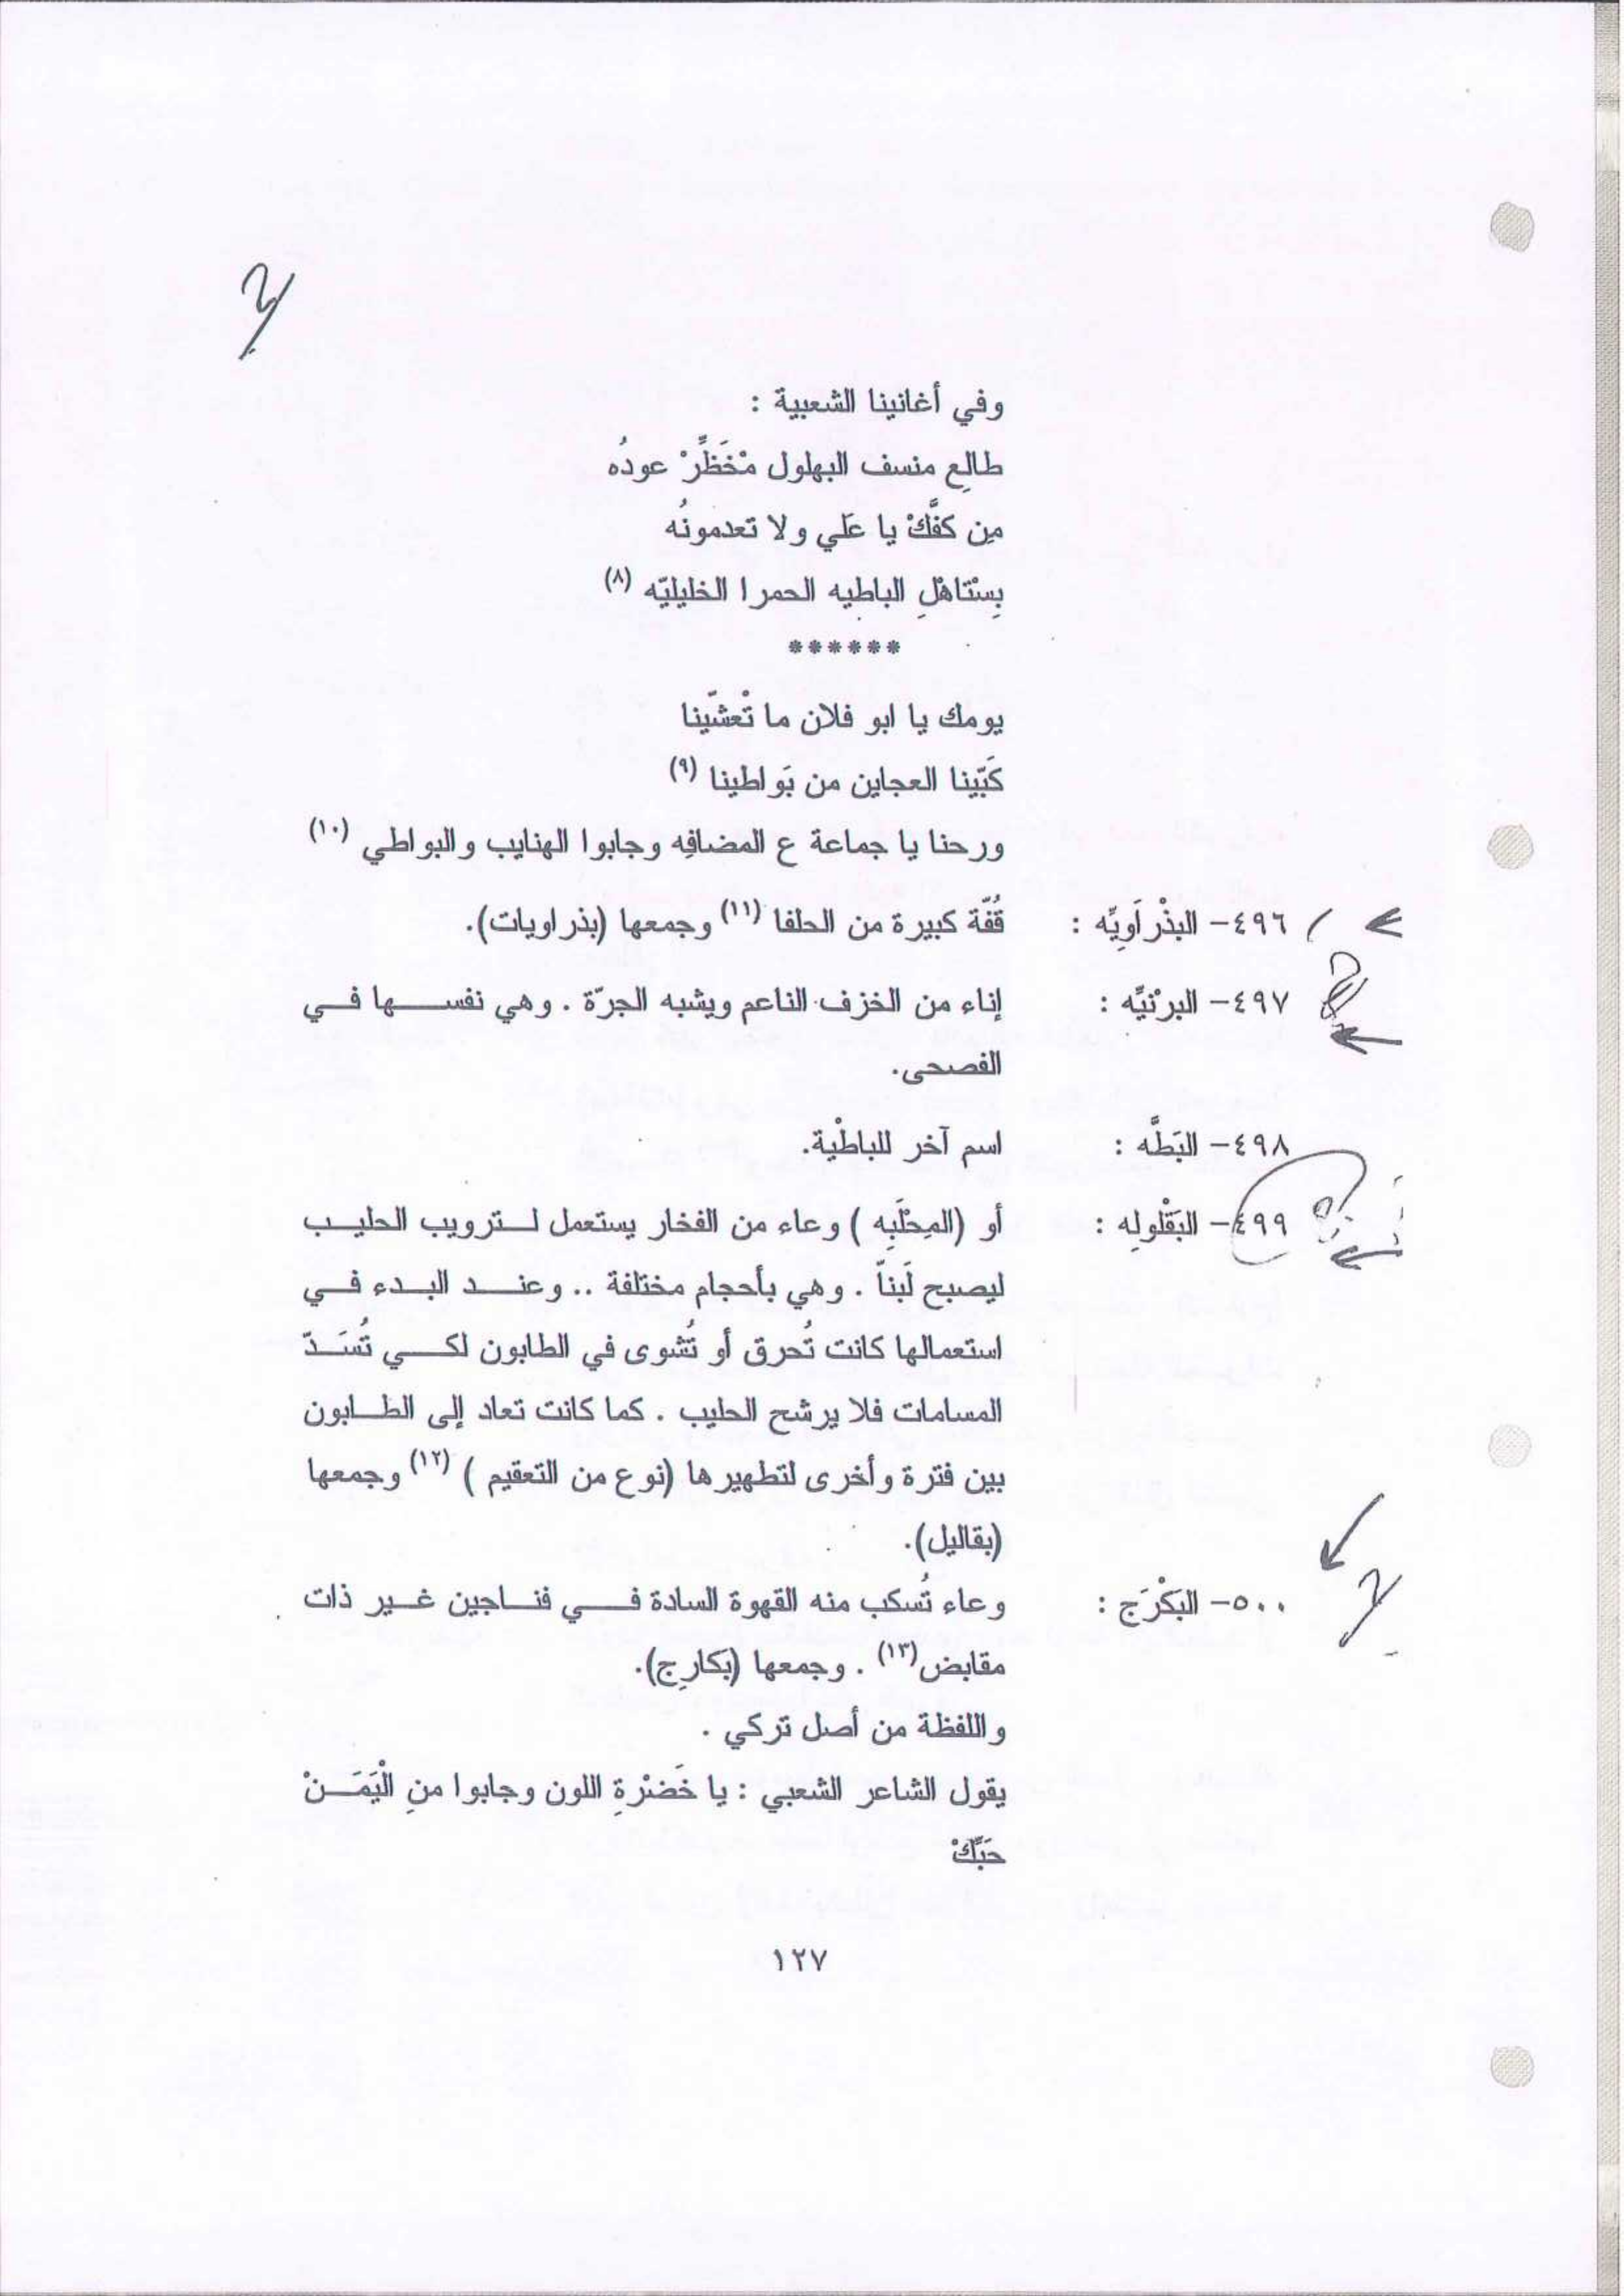 وفي أغانينا الشعبية :
طالِع منسف البهلول مْخَظَّرْ عودُه
مِن كفَّكْ يا عَلي ولا تعدمونُه
بِسْتَاهْلِ الباطيه الحمرا الخليليّه (٨)
******
يومك يا ابو فلان ما تْعشّينا
كَبّينا العجاين من بَواطينا (٩)
ورحنا يا جماعة ع المضافِه وجابوا الهنايب والبواطي (١٠)
٤٩٦- البذْراَوِيِّه : قُفّة كبيرة من الحلفا (١١) وجمعها (بذراويات).
٤٩٧- البرْنيِّه : إناء من الخزف الناعم ويشبه الجرّة . وهي نفسها في
الفصحى.
٤٩٨- البَطَّه : اسم آخر للباطْية.
٤٩٩- البَقْلولِه : أو (المِحْلَبِه ) وعاء من الفخار يستعمل لترويب الحليب
ليصبح لَبناً . وهي بأحجام مختلفة .. وعند البدء في
استعمالها كانت تُحرق أو تُشوى في الطابون لكي تُسَدّ
المسامات فلا يرشح الحليب . كما كانت تعاد إلى الطابون
بين فترة وأخرى لتطهيرها (نوع من التعقيم ) (١٢) وجمعها
(بقاليل).
٥٠٠- البَكْرَج : وعاء تُسكب منه القهوة السادة في فناجين غير ذات
مقابض(١٣) . وجمعها (بكارِج).
واللفظة من أصل تركي .
يقول الشاعر الشعبي : يا خَضْرةِ اللون وجابوا منِ الْيَمَنْ
حَبِّكْ
١٢٧